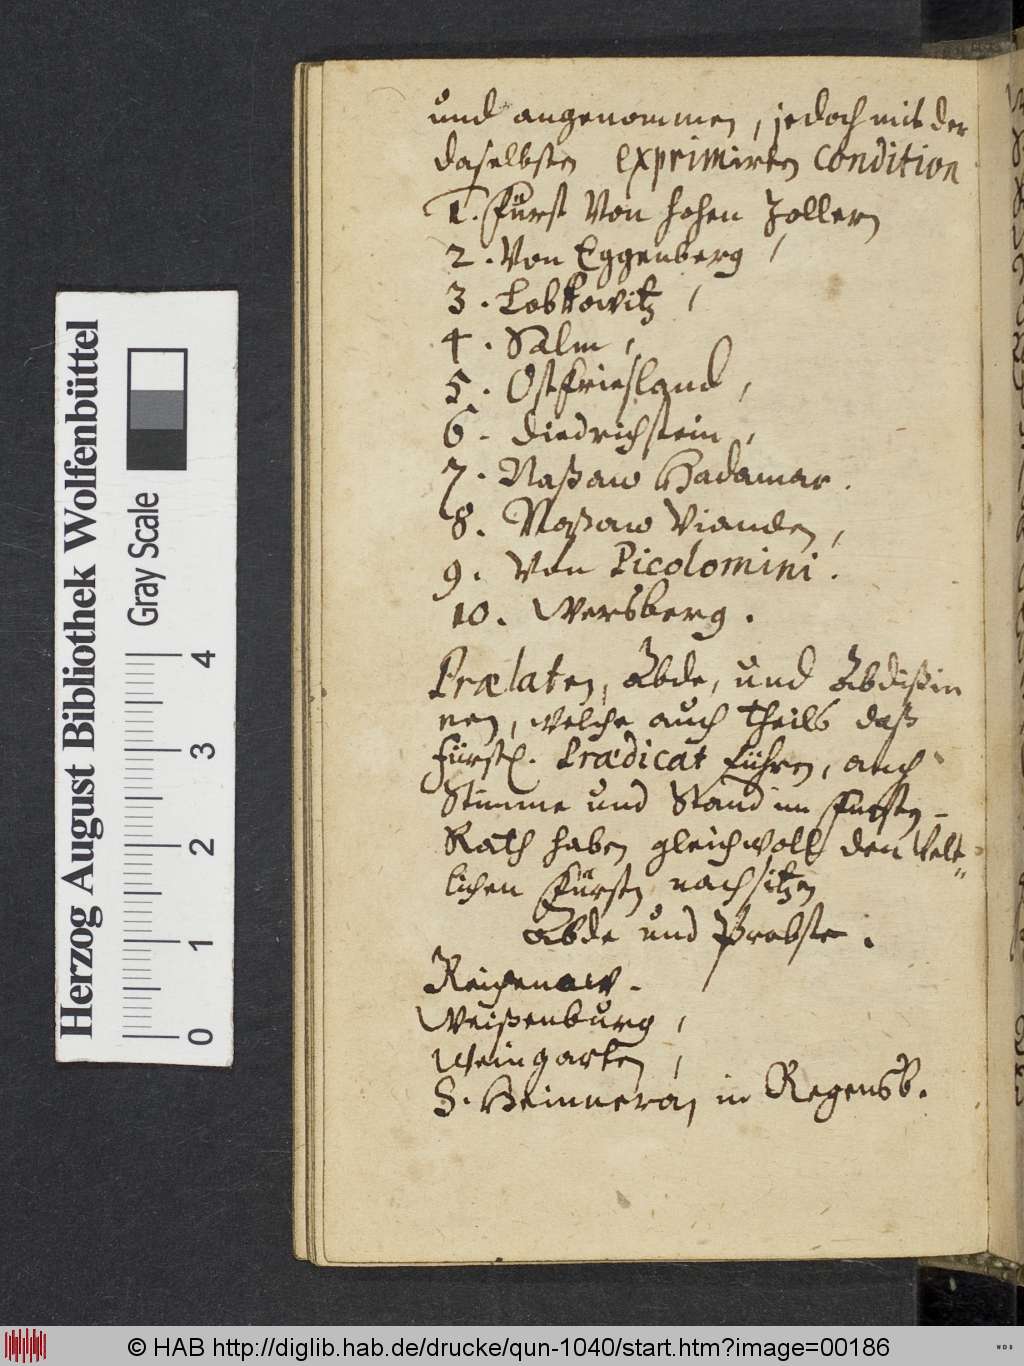 und angenommen, jedoch mit der
daselbsten exprimirten condition
1. Fürst Von hohen Zollern
2. Von Eggenberg,
3. Lobkowitz,
4. Salm,
5. Ostfriesland,
6. Diedrichstein,
7. Naßaw Hadamar.
8. Naßaw Vianden,
9. Von Picolomini.
10. Wersberg.
Prælaten, Äbde, und Äbdißin
nen, welche auch theils daß
fürstl. Prædicat führen, auch
Stimme und Stand im Fürsten-
Rath haben gleichwoll den Welt-
lichen Fürsten nach sitzen
Äbde und Pröbste.
Reichenaw.
Weißenburg,
Weingarten,
S. Heimeran in Regensb.
Herzog August Bibliothek Wolfenbüttel
Gray Scale
0 1 2 3 4
© HAB http://diglib.hab.de/drucke/qun-1040/start.htm?image=00186